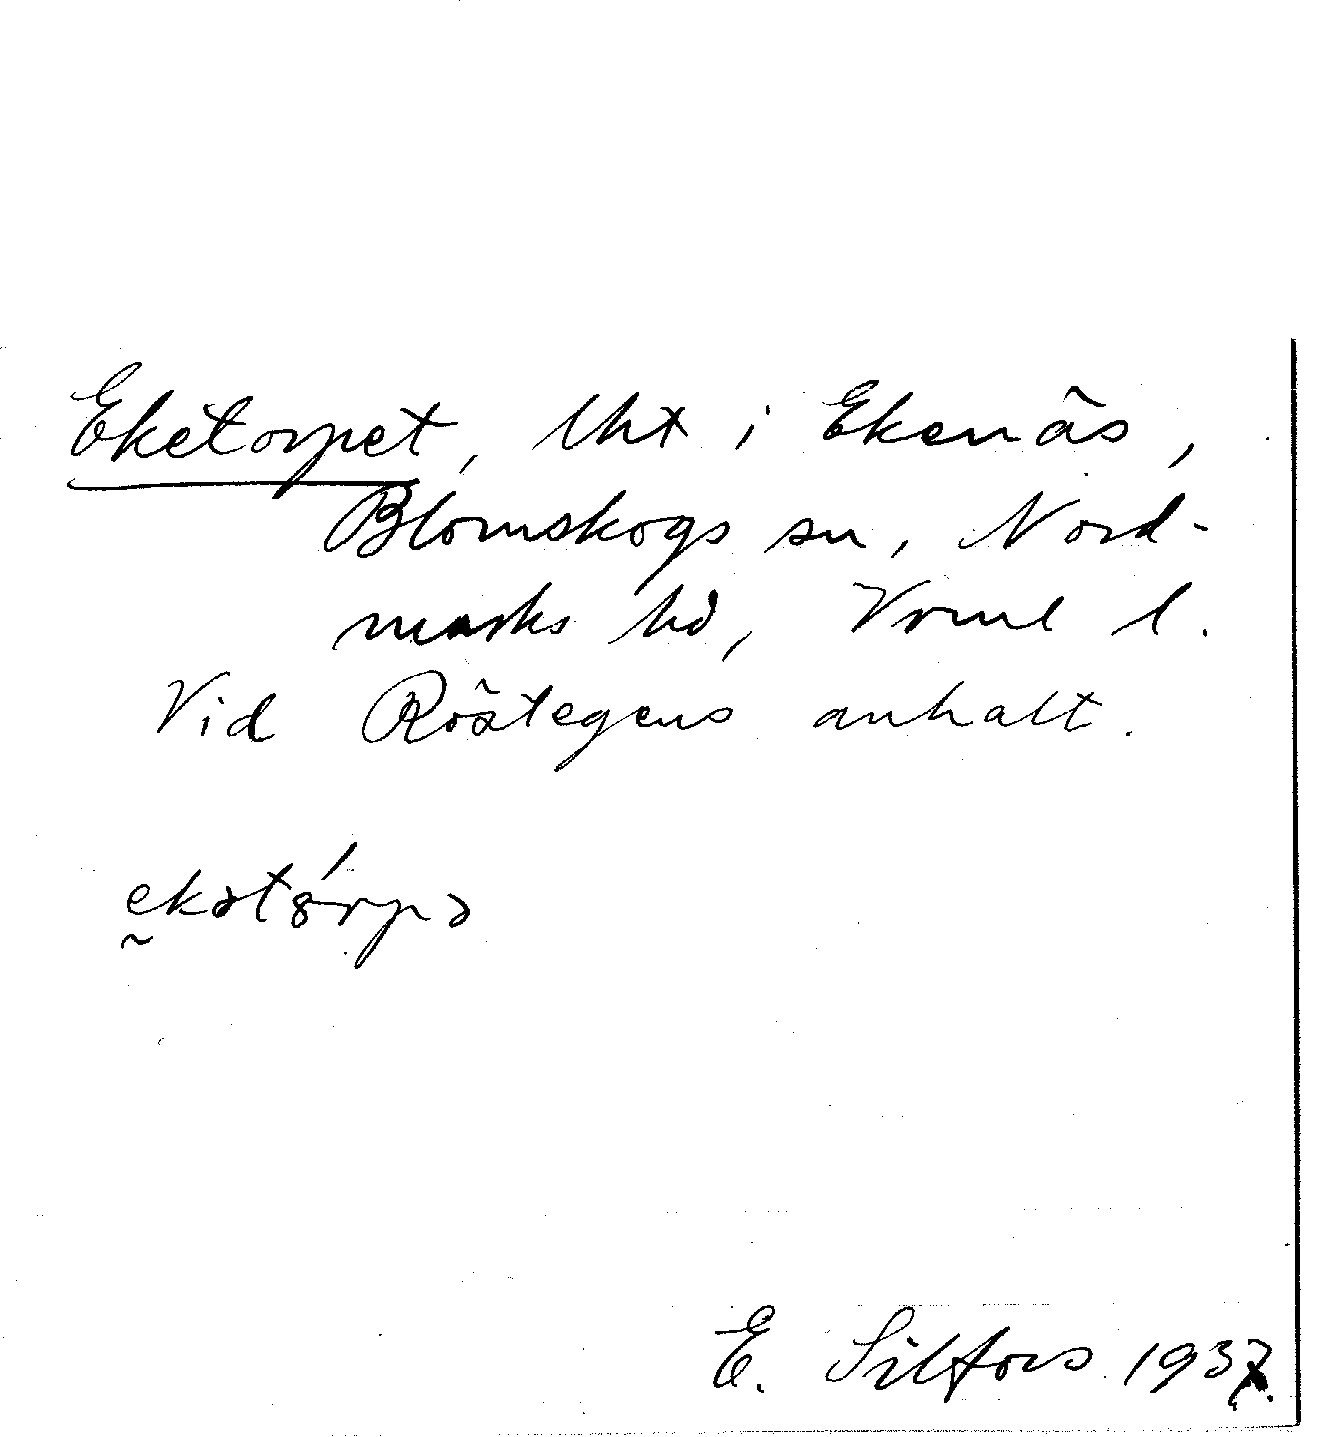 Eketorpet, lht i Ekenäs,
Blomskogs sn, Nord-
marks hd, Vrml l.
Vid Röstegens anhalt.
ekətórpə
E. Silfors 1937.